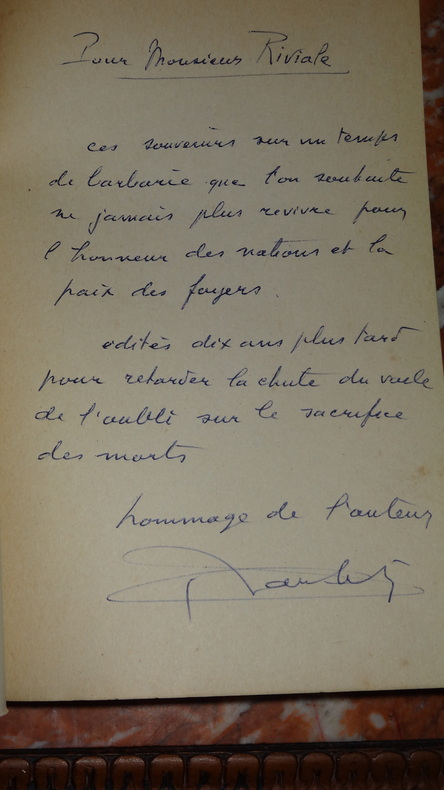 Pour Monsieur Riviale
ces souvenirs sur un temps
de barbarie que l'on souhaite
ne jamais plus revivre pour
l'honneur des nations et la
paix des foyers.
édités dix ans plus tard
pour retarder la chute du voile
de l'oubli sur le sacrifice
des morts
hommage de l'auteur